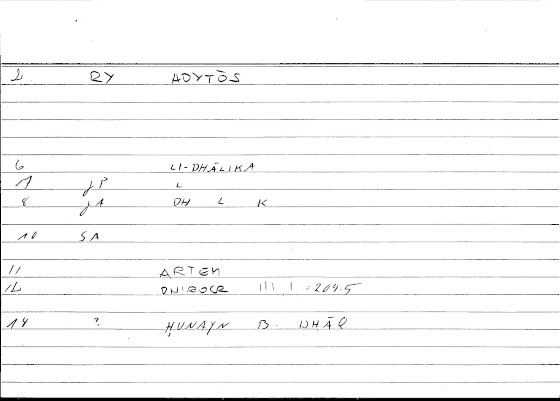 2 RY ADYTŌS
6 LI-DHĀLIKA
7 JP L
8 JA DH L K
10 SA
11 ARTEM
12 DNIROCR III, 1 = 204.5
14 ? ḤUNAYN B.